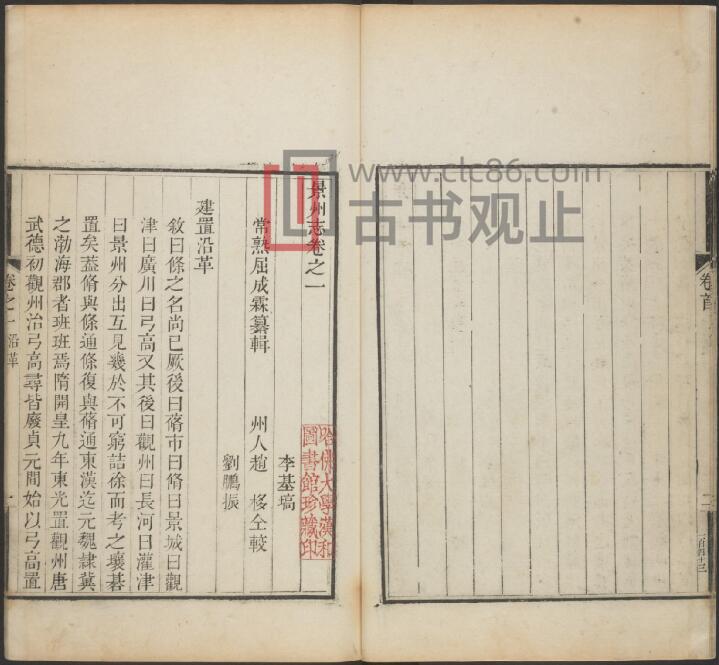 景州志卷之一
常熟屈成霖纂輯
李基塙
州人趙 移仝較
劉鵬振
建置沿革
敘曰條之名尚已厥後曰脩市曰脩曰景城曰觀
津曰廣川曰弓高又其後曰觀州曰長河曰灌津
曰景州分出互見幾於不可窮詰徐而考之壤碁
置矣葢脩與條通條復與脩通東漢迄元魏隷冀
之渤海郡者班班焉隋開皇九年東光置觀州唐
武德初觀州治弓高尋皆廢貞元間始以弓高置
卷之一 沿革
一
卷首
哈佛大學漢和
圖書館珍藏印
www.ctc86.com
古书观止